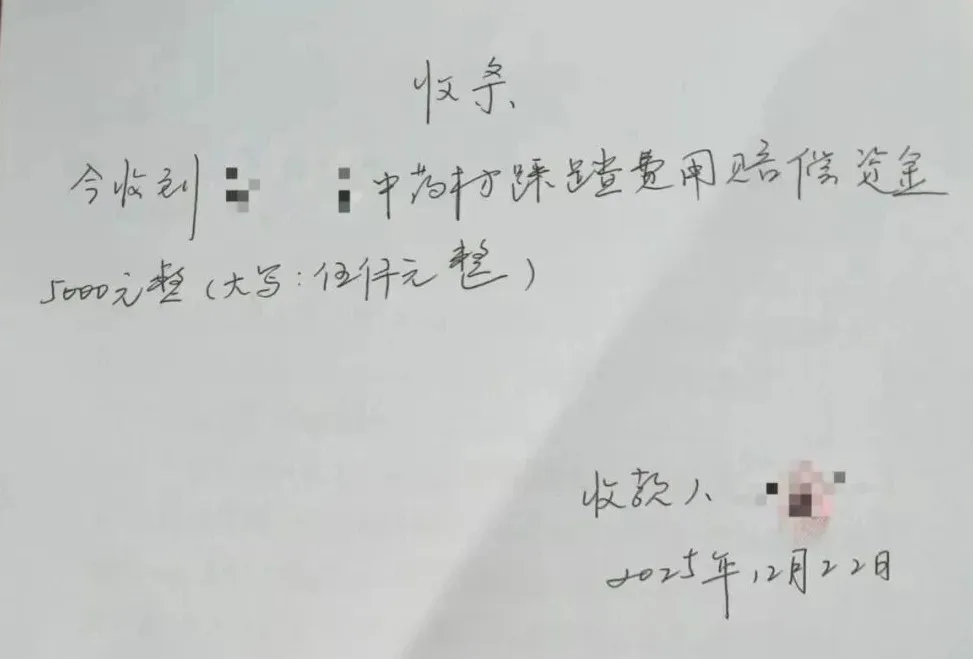 收条
今收到 中药材踩踏费用赔偿资金
5000元整(大写:伍仟元整)
收款人
2025年12月22日